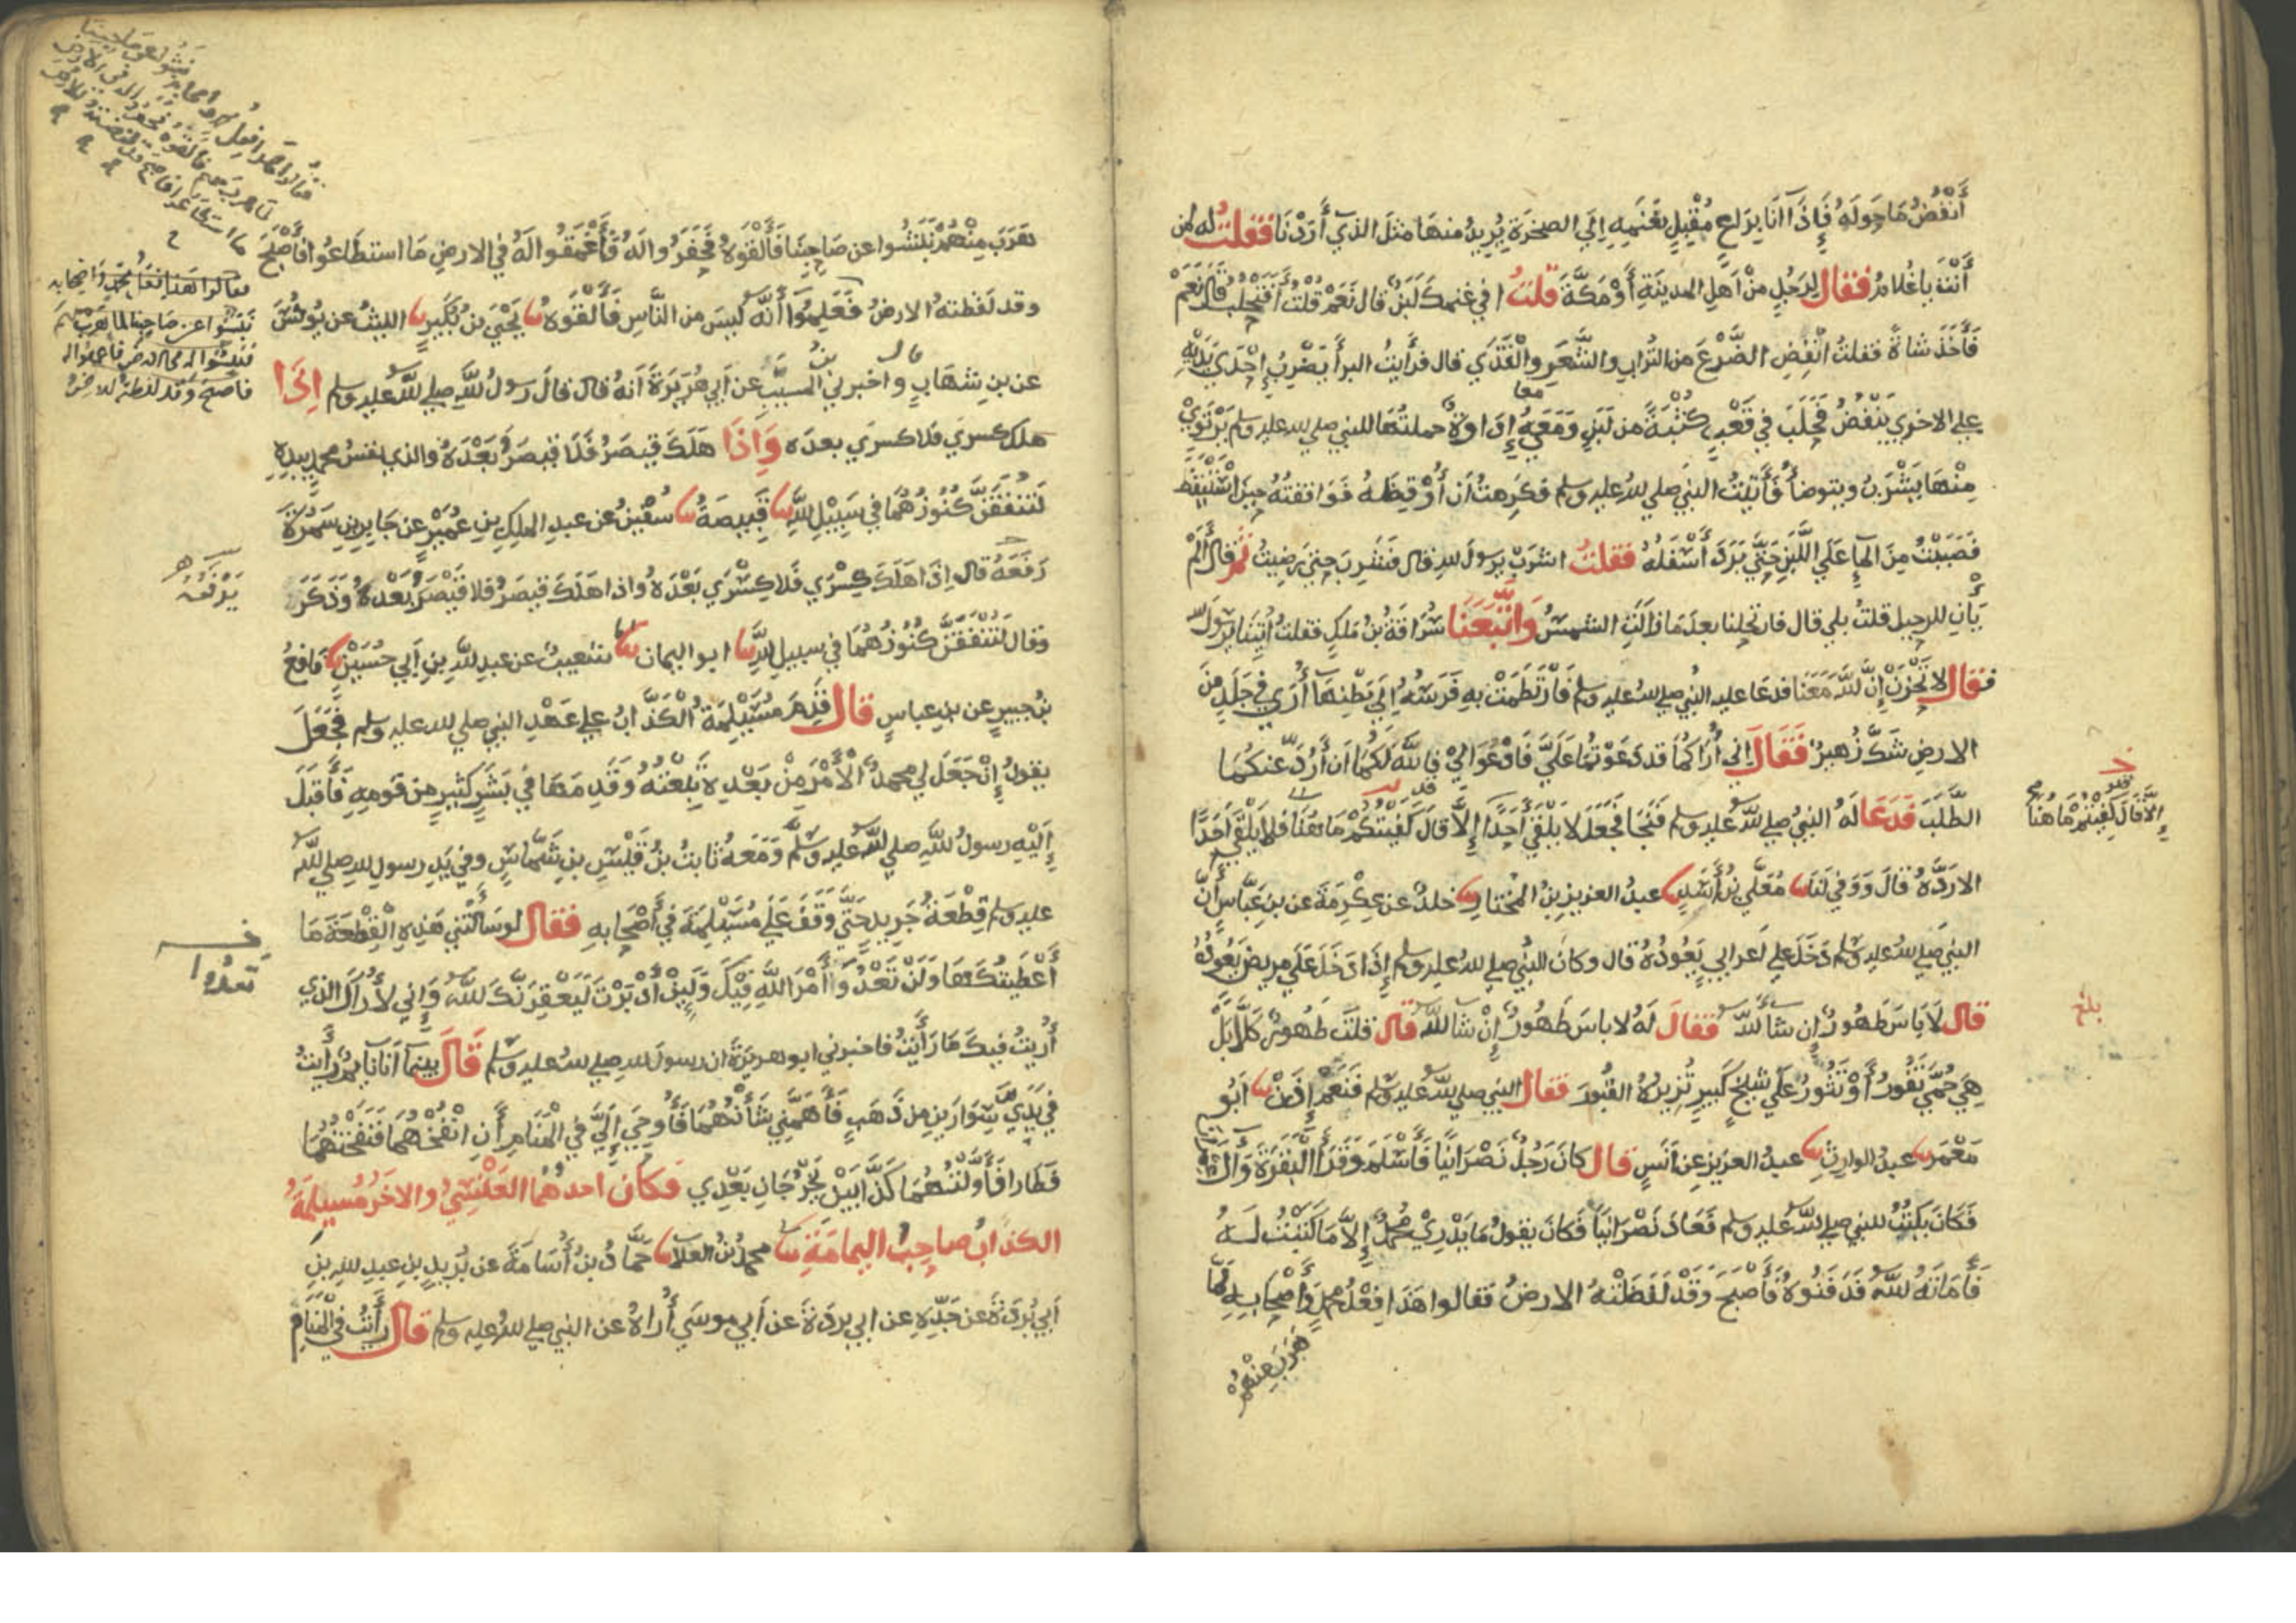 أَنْفُضُ مَا حَوْلَهُ فَإِذَا أَنَا بِرَاعٍ مُقْبِلٍ بِغَنَمِهِ إِلَى الصخرَةِ يُرِيدُ منهَا مثلَ الذي أَرَدْنَا فقلتُ له لمن
أَنْتَ يا غُلامُ فقال لِرَجُلٍ منْ أهلِ المدينَةِ أَوْ مَكَّةَ قلتُ ا في غنمكَ لَبَنٌ قال نَعَمْ قُلْتُ أَفَتَحْلِبُ قَالَ نَعَمْ
فَأَخَذَ شاةً فقلتُ انْفُضِ الضَّرْعَ من التُرابِ والشَّعَرِ والْقَذَي قال فرأيتُ البراَ يَضْرِبُ إِحْدَي يَدَيْهِ
علي الاخري يَنْفُضُ فَحَلَبَ في قَعْبٍ كُثْبَةً من لَبَنٍ وَمَعِي إِدَاوةٌ حملتُهَا للنبي صلي لله عليه وسلم يَرْتَوِيْ
مِنْهَا يَشْرَبُ ويتوضأُ فَأَتَيْتُ النبيَ صلي للهُ عليه وسلم فكرِهتُ أن أُوْقِظَهُ فَوَافقتُهُ حِيْنَ اسْتَيْقَظ
فَصَبَبْتُ مِنَ المآءِ عَلَي اللَّبَنِ حَتَّي بَرَدَ أَسْفَلُهُ فقلتُ اشرَبْ يرسولَ لله قال فشَرِبَ حتي رضيتُ ثُمَّ قال أَلَمْ
يَأْنِ للرحيلِ قلتُ بلي قال فارتحلنا بعدَ مَا زالَتِ الشمسُ وَاتَّبَعَنَا سُرَاقَةُ بنُ مَلِكٍ فقلتُ أُتِيْنَا يرسُولَ لله
فقال لا تَحْزَنْ إِنَّ للَّهَ مَعَنَا فدعَا عليه النبيُ صلي للهُ عليه وسلم فَارْتَطَمَتْ بهِ فَرَسُهُ إِلَي بَطْنِهَا أُرَي في جَلَدٍ مِنَ
الارضِ شَكَّ زُهيرٌ فَقَالَ إِني أُرَاكُمَا قد دَعَوْتُمَا عَلَيَّ فَادْعُوَا لِيْ فاللَّهُ لَكُمَا أن أَرُدَّ عنكُمَا
الطَّلَبَ فَدَعَا لَهُ النبيُ صلي للَّهُ عليه وسلم فَنَجَا فَجَعَلَ لا يَلْقَي أَحَدًا إِلَّا قالَ كَفَيْتُكُمْ مَا هُنَا فلا يَلْقَي أَحَدًا
إِلَّا قَالَ كُفِيْتُمْ مَا هُنَا
الا رَدَّهُ قالَ وَوَفي لَنَا مُعَلَّي بنُ أَسَدٍ عبدُ العزيزِ بنُ المُختارِ خلدٌ عن عِكْرِمَةَ عن بنِ عَبَّاسٍ أَنَّ
النبيَ صلي للهُ عليه وسلم دَخَلَ علي أعرابيٍ يَعُودُهُ قال وكان النبيُ صلي للهُ عليه وسلم إِذَا دَخَلَ عَلَي مريضٍ يَعُودُهُ
قال لَا بَاسَ طَهُورٌ إِن شا للَّهُ فقالَ لَهُ لا باسَ طَهُورٌ إِنْ شا للَّهُ قال قلتَ طَهُورٌ كَلَّا بَلْ
بلغ
هِيَ حُمَّي تَفُورُ أَوْ تَثُورُ عَلَي شيخٍ كَبِيرٍ تُزِيْرُهُ القُبُورَ فقال النبي صلي للهُ عليه وسلم فَنَعَمْ إِذَنْ أَبُو
مَعْمَرٍ عبدُ الوارثِ عبدُ العزيزِ عن أَنَسٍ قال كانَ رَجُلٌ نَصْرَانيًا فَأَسْلَمَ وَقَرَأَ الْبَقَرَةَ وَآلَ
فَكَانَ يَكْتُبُ للنبي صلي للَّهُ عليه وسلم فَعَادَ نَصْرَانيًا فَكانَ يقولُ مَا يَدْرِيْ مُحمدٌ إِلَّا مَا كَتَبْتُ لَهُ
فَأَمَاتَهُ للَّهُ فَدَفَنُوهُ فَأَصْبَحَ وَقَدْ لَفَظَتْهُ الارضُ فقالوا هَذَا فِعْلُ محمدٍ وَأَصْحَابِهِ لَمَّا
هَرَبَ مِنْهُمْ
هَرَبَ مِنْهُمْ نَبَشُوا عن صَاحِبِنَا فَأَلْقَوْهُ فَحَفَرُوا لَهُ فَأَعْمَقُوا لَهُ في الارضِ مَا استطَاعُوا فأَصْبَحَ
وقد لَفَظَتهُ الارضُ فَعَلِمُوا أَنَّهُ لَيسَ من النَّاسِ فَأَلْقَوْهُ يَحْيَي بنُ بُكَيرٍ الليثُ عن يُونُسَ
عن بنِ شهَابٍ واخبرني بنُ المسيَّبِ عن أَبي هُرَيْرَةَ أَنهُ قال قالَ رسولُ للَّهِ صلي للَّهُ عليه وسلم إِذَا
هلَكَ كسرَي فَلا كسرَي بعدَه وَإِذَا هَلَكَ قيصَرُ فَلَا قيصَرَ بَعْدَهُ والذي نفسُ محمدٍ بيدِهِ
لَتُنْفِقُنَّ كُنُوزَهُمَا في سَبِيْلِ للَّهِ قَبِيصَةُ سُفْينُ عن عبدِ الملِكِ بنِ عُمَيْرٍ عن جَابِرِ بنِ سَمُرَةَ
رَفَعَهُ قال إِذَا هَلَكَ كِسْرَي فَلا كِسْرَي بَعْدَهُ واذا هَلَكَ قيصَرُ فلا قَيْصَرَ بَعْدَهُ وَذَكَرَ
يَرْفَعُهُ
وقال لَتُنْفَقَنَّ كُنُوزُهُمَا في سبيلِ للَّهِ ابو اليمانِ شعيبٌ عن عبدِ للَّهِ بنِ أَبي حُسَيْنٍ نَافِعُ
بنُ جبيرٍ عن بنِ عباسٍ قال قَدِمَ مُسَيْلِمَةُ الْكَذَّابُ علي عَهْدِ النبي صلي لله عليه وسلم فَجَعَلَ
يقولُ إِنْ جَعَلَ لي محمدٌ الْأَمْرَ مِنْ بَعْدِهِ تَبِعْتُهُ وَقَدِمَهَا فِي بَشَرٍ كثيرٍ من قومِهِ فَأَقبَلَ
إِلَيْهِ رسولُ للَّهِ صلي للَّهُ عليه وسلَّم وَمَعَهُ ثابتُ بنُ قَيْسِ بنِ شَمَّاسٍ وفي يَدِ رسولِ للهِ صلي للَّهُ
عليه وسلم قِطْعَةُ جَرِيدٍ حَتَّي وَقَفَ عَلَي مُسَيْلِمَةَ في أَصْحَابِهِ فقال لو سَأَلْتَنِي هَذِهِ الْقِطْعَةَ مَا
أَعْطَيتُكَهَا وَلَنْ تَعْدُوَ أَمْرَ اللَّهِ فِيْكَ وَلَئِنْ أَدْبَرْتَ لَيَعْقِرَنَّكَ للَّهُ وَإِني لأُرَاكَ الذي
تعدُوا
أُرِيتُ فيكَ مَا رَأَيْتُ فاخبرني ابو هريرَةَ ان رسولَ لله صلي للهُ عليه وسلم قَالَ بينمآ أَنا نآيمٌ رأَيتُ
في يَدَيَّ سِوَارَيْنِ من ذَهَبٍ فَأَهَمَّنِي شَأْنُهُمَا فَأُوحِيَ إِلَيَّ فِي الْمَنَامِ أَنِ انْفُخْهُمَا فَنَفَخْتُهُمَا
فَطَارَا فَأَوَّلْتُهُمَا كَذَّابَيْنِ يَخْرُجَانِ بَعْدِي فكان احدهُمَا العَنْسِيُّ والاخَرُ مُسيلمَةُ
الكذابُ صاحِبُ اليمامَةِ محمدُ بنُ العلا حَمَّادُ بنُ أُسَامَةَ عن بُرَيدِ بنِ عبدِ للهِ بنِ
أَبي بُرْدَةَ عن جَدِّهِ عن ابي بردَةَ عن أَبي موسَي أُرَاهُ عن النبي صلي للهُ عليه وسلم قال رأَيتُ في المنَامِ